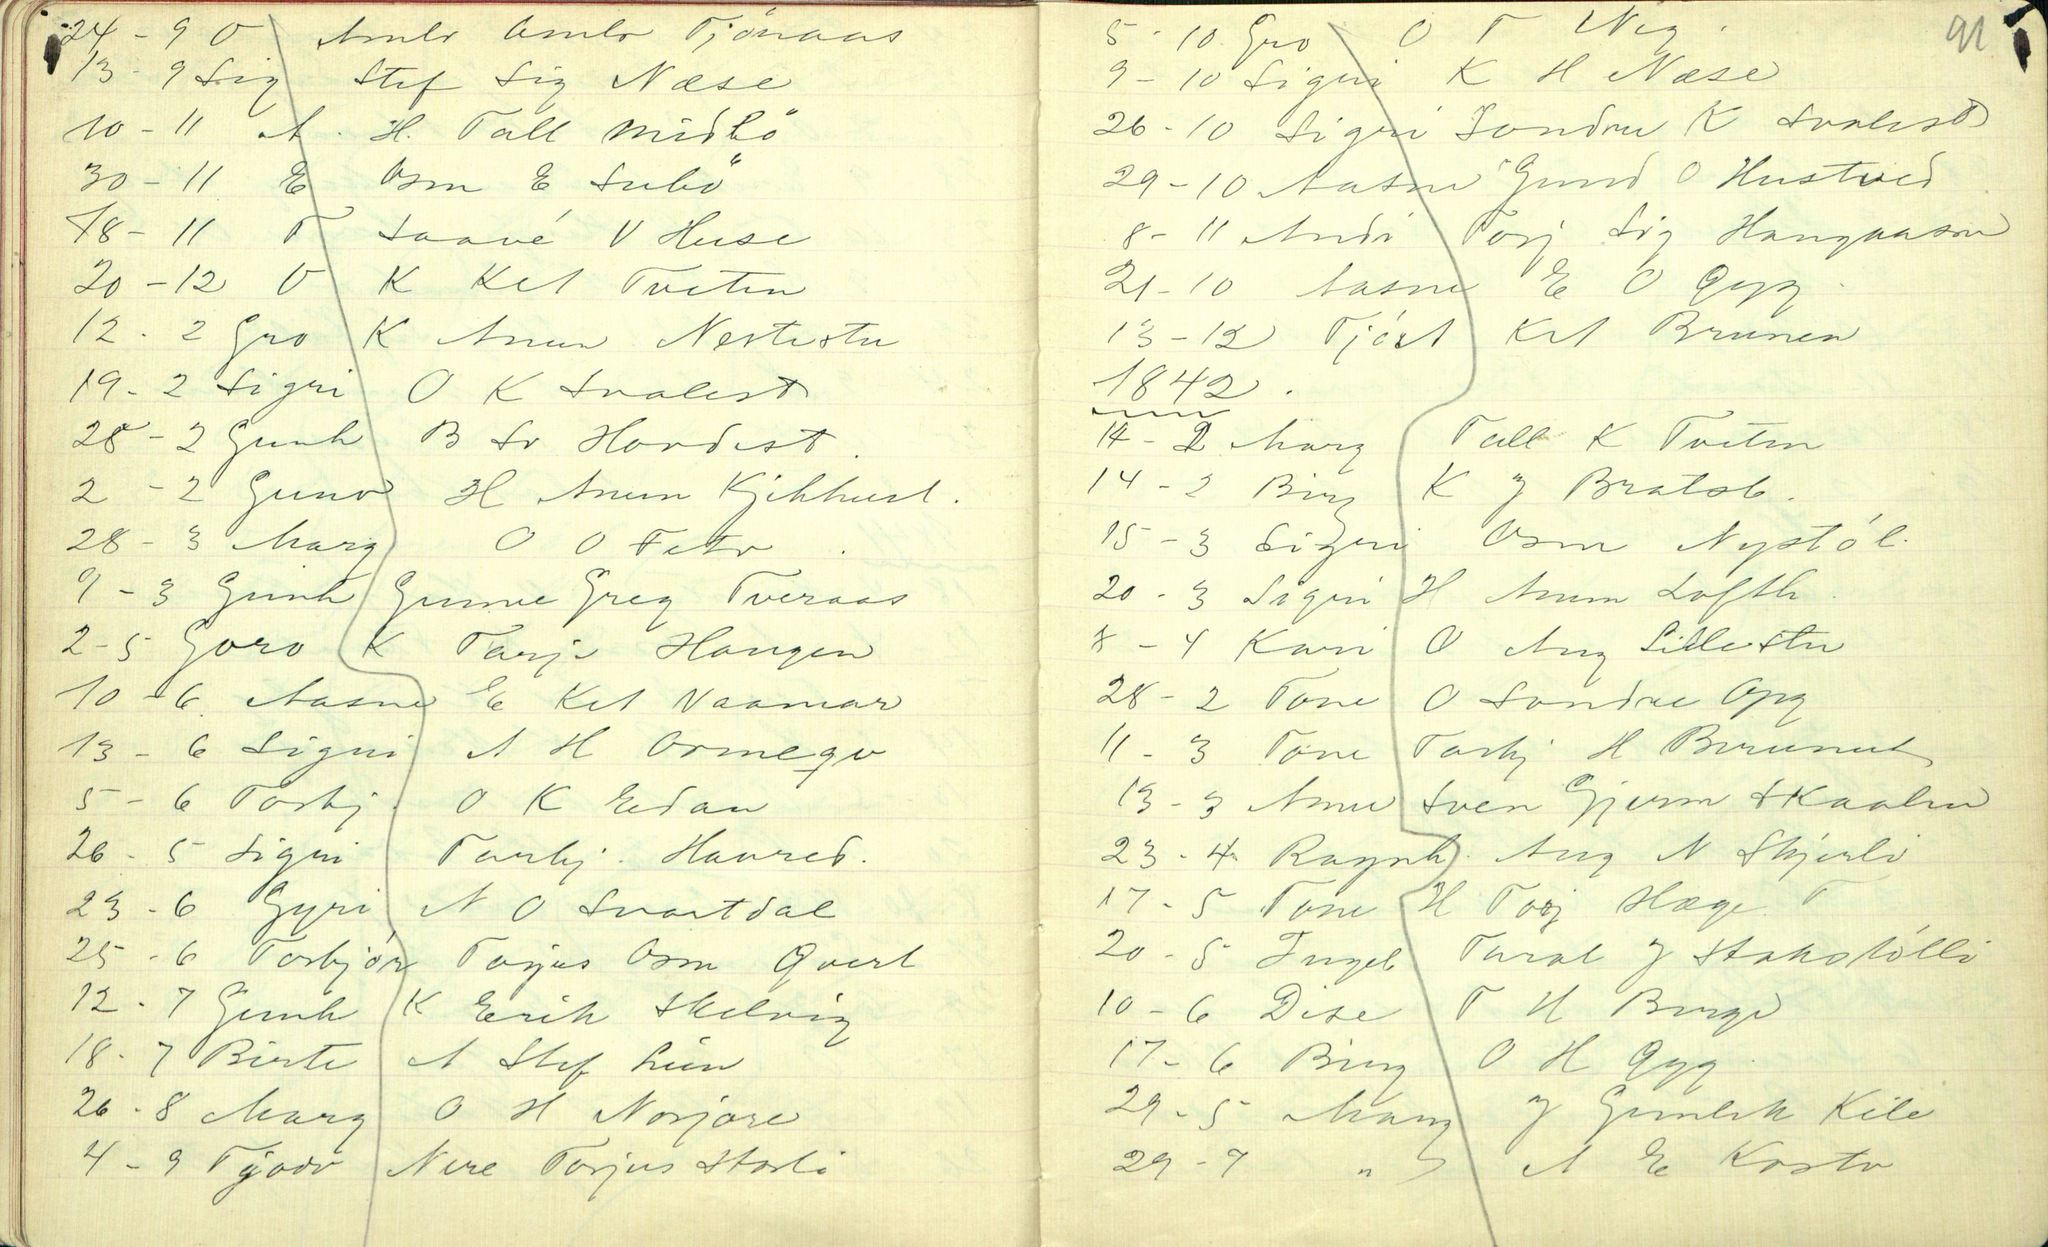 24 - 9 O Ambr Ambr Tjönaas
13 - 9 Sig Stef Sig Næse
10 - 11 A. H. Tall Midbö
30 - 11 E Osm E Subö
18 - 11 T Saavé V Huse
20 - 12 O K Ket Tveten
12 - 2 Gro K Anun Nestestu
19 - 2 Sigri O K Svalest
28 - 2 Gunh B Sv Hovdest.
2 - 2 Gunv H Anun
28 - 3 Marg O O
9 - 3 Gunh Gunne Greg Tveraas
2 - 5 Goro K Tarje Haugen
10 - 6 Aasne E Ket Vaamar
13 - 6 Signi A H
5 - 6 Torbj. O K Edan
26 - 5 Sigri Torbj. Havred.
23 - 6 Gyri N O Svartdal
25 - 6 Torbjör Torjus Osm Qverl
12 - 7 Gunh K Erik Skelvig
18 - 7 Birte A Stef Lien
26 - 8 Marg O H Norjore
4 - 9 Tjodv Nere Torjus Storli
91
5 - 10 Gro O T Nig.
9 - 10 Signi K H Næse
26 - 10 Sigri Sondre K Svalest
29 - 10 Aasne Gund O Hustved
8 - 11 Andi Torj Sig Haugaasen
21 - 10 Aasne E O Qyg.
13 - 12 Tjöst Ket Brunen
1842.
14 - 2 Marg Tall K Tveten
14 - 2 Birg K J Bratsb.
15 - 3 Sigri Osm Nystöl.
20 - 3 Sigri H Anun Lofth.
8 - 4 Kari O Aug Lillestu
28 - 2 Tone O Sondre Qyg
11 - 3 Tone Torbj H
13 - 3 Anne Sven Gjerm Skaalen
23 - 4 Ragnh. Aug N Skjerli
17 - 5 Tone H Torj Hæge T
20 - 5 Ingeb Taral J Stakstölli
10 - 6 Dise T H Berge
17 - 6 Birg O H Qyg.
29 - 5 Marg J Gunlek Kile
29 - 7 " A E Kostv